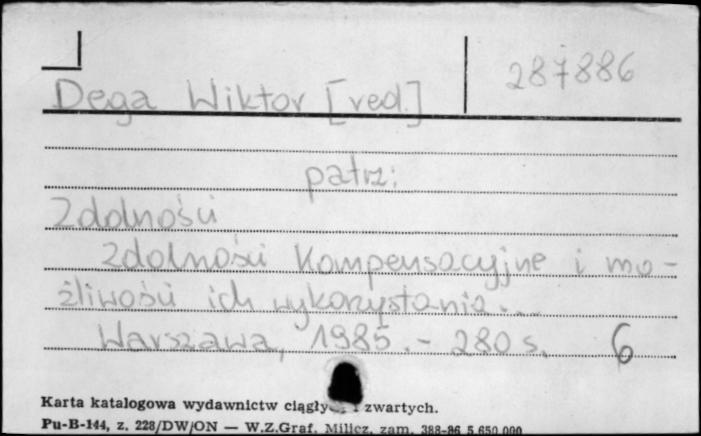 287886
Dega Wiktor [red.]
patrz:
Zdolności
Zdolności kompensacyjne i mo-
żliwości ich wykorzystania...
Warszawa, 1985.- 280 s. 6
Karta katalogowa wydawnictw ciągłych i zwartych.
Pu-B-144, z. 228/DW/ON — W.Z.Graf. Milicz, zam. 388-86 5 650 000